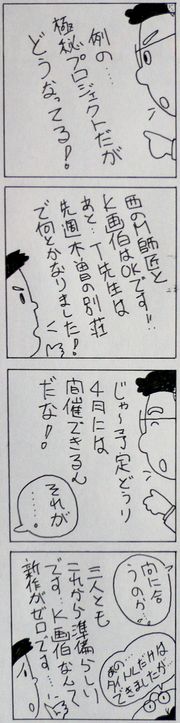 例の…
極秘プロジェクトだが
どうなってる!
西のM師匠と
K画伯はOKです!!
あと…T先生は
先週木曽の別荘
で何とかなりました!
じゃ〜予定どうり
4月には
開催できるん
だな!
それが
……
間に合
うのか…
あの…
タイトルだけは
できましたが…
三人とも
これから準備らしい
です…K画伯なんて
新作がゼロです…